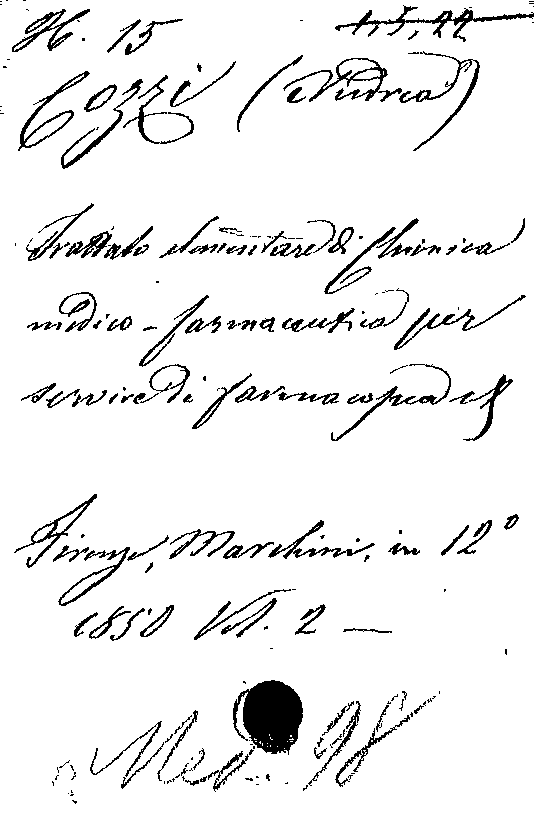 H. 15 1, 5, 22
Cozzi (Andrea)
Trattato elementare di Chimica
medico - farmaceutica per
servire di farmacopea etc
Firenze, Marchini, in 12º
1850 Vol. 2 —
Med. 98